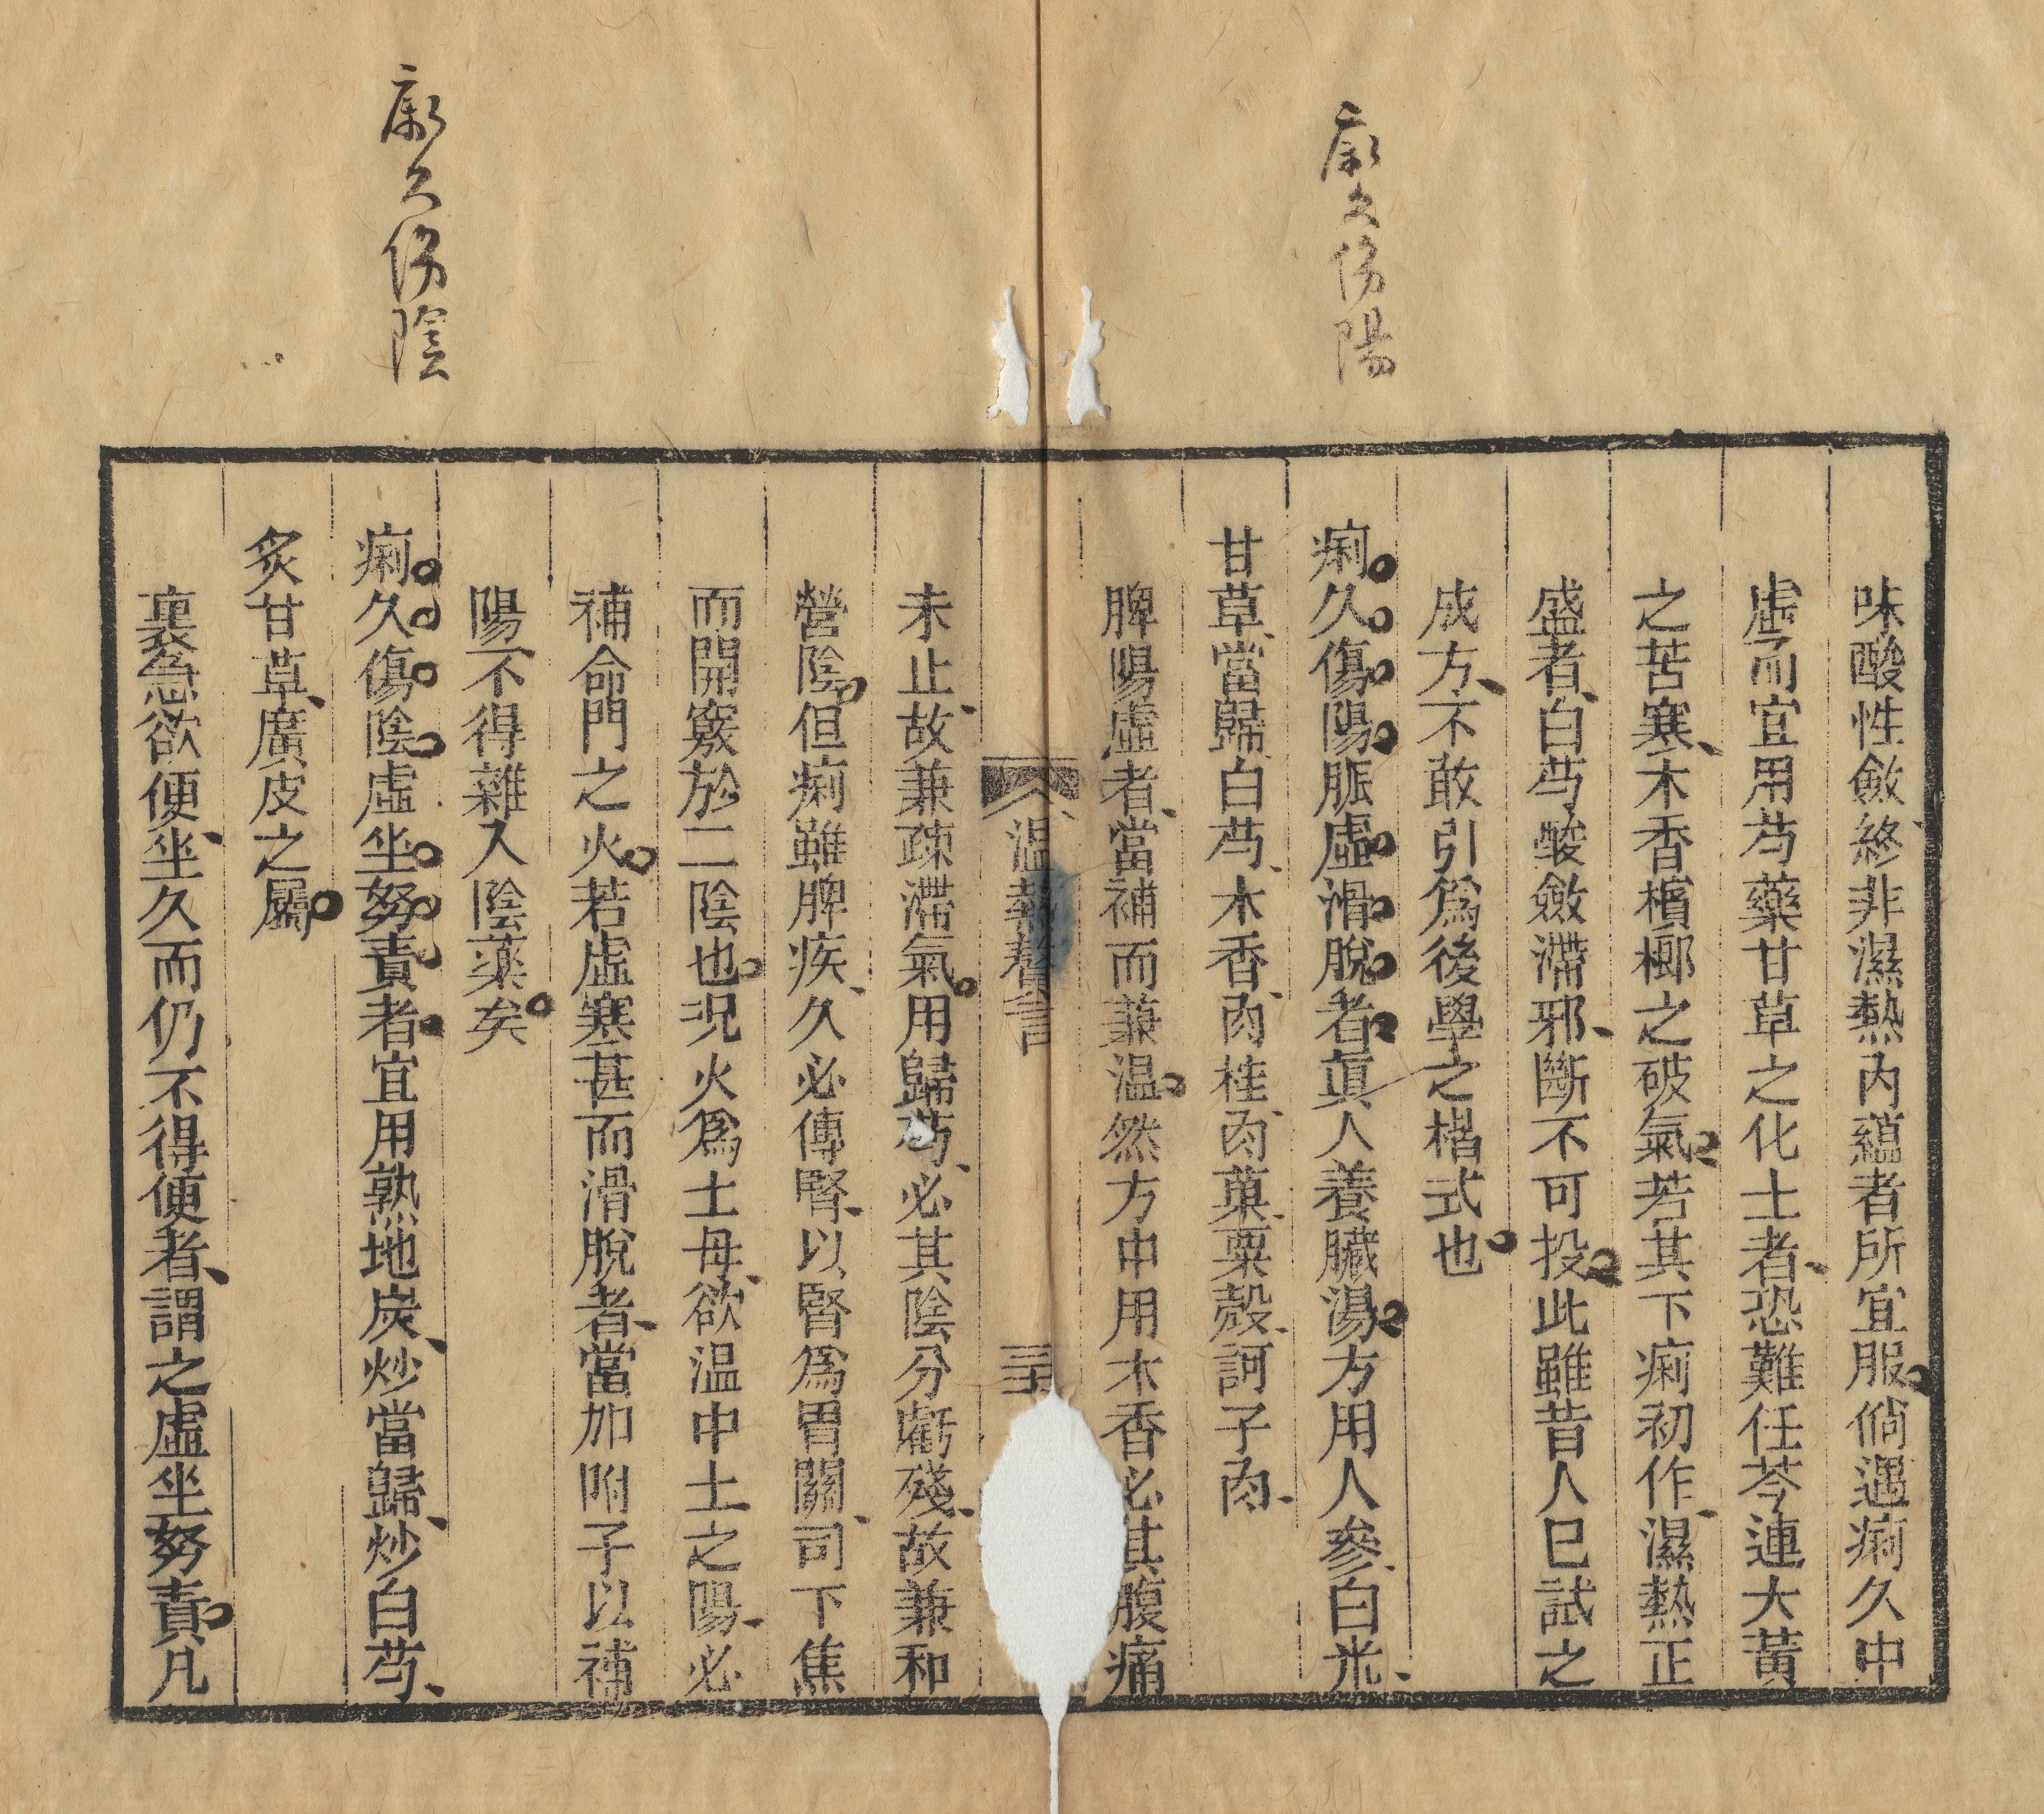 痢久傷陽
味酸性斂終非濕熱內蘊者所宜服倘遇痢久中
虛而宜用芍藥甘草之化土者恐難任芩連大黃
之苦寒木香檳榔之破氣若其下痢初作濕熱正
盛者白芍酸斂滯邪斷不可投此雖昔人已試之
成方不敢引爲後學之楷式也
痢久傷陽脈虛滑脫者眞人養臟湯方用人參白朮
甘草當歸白芍木香肉桂肉菓粟殼訶子肉
脾陽虛者當補而兼溫然方中用木香必其腹痛
温熱贅言
三十
痢久傷陰
未止故兼疎滯氣用歸芍必其陰分虧殘故兼和
營陰但痢雖脾疾久必傳腎以腎爲胃關司下焦
而開竅於二陰也况火爲土母欲温中土之陽必
補命門之火若虛寒甚而滑脫者當加附子以補
陽不得雜入陰藥矣
痢久傷陰虛坐努責者宜用熟地炭炒當歸炒白芍
炙甘草廣皮之屬
裏急欲便坐久而仍不得便者謂之虛坐努責凡